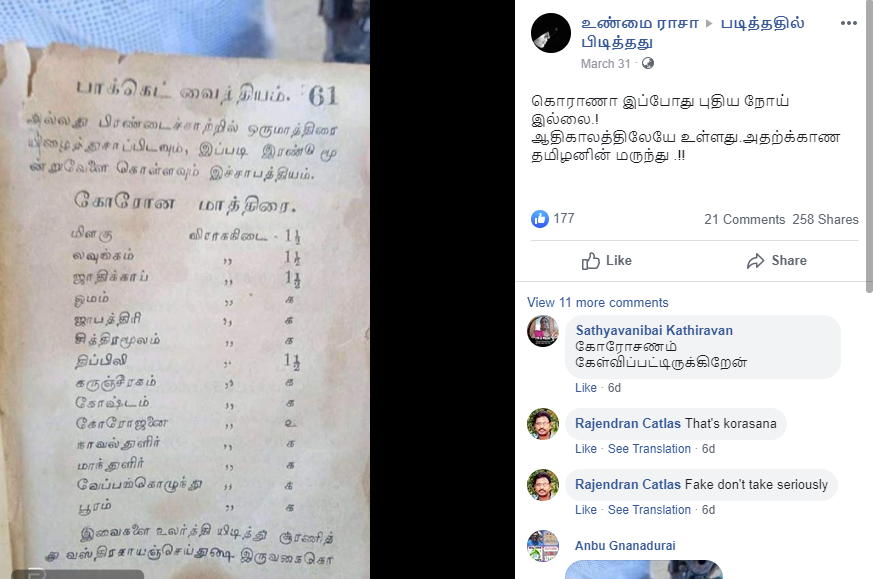 பாக்கெட் வைத்தியம். 61
அல்லது பிரண்டைச்சாற்றில் ஒருமாத்திரை
யிழைத்துசாப்பிடவும், இப்படி இரண்டு மூ
ன்றுவேளை கொள்ளவும் இச்சாபத்தியம்.
கோரோன மாத்திரை.
மிளகு விராகனிடை - 1½
லவுங்கம் ,, 1½
ஜாதிக்காய் ,, 1½
ஓமம் ,, க
ஜாபத்திரி ,, க
சித்திரமூலம் ,, க
திப்பிலி ,, 1½
கருஞ்சீரகம் ,, க
கோஷ்டம் ,, க
கோரோஜனை ,, உ
நாவல்துளிர் ,, க
மாந்துளிர் ,, க
வேப்பங்கொழுந்து ,, க
பூரம் ,, க
இவைகளை உலர்த்தி யிடித்து சூரணித்
து வஸ்திரகாயஞ்செய்துடி இருவகைகொ
உண்மை ராசா ▸ படித்ததில்
பிடித்தது
March 31 ·
கொராணா இப்போது புதிய நோய்
இல்லை.!
ஆதிகாலத்திலேயே உள்ளது.அதற்க்காண
தமிழனின் மருந்து .!!
177 21 Comments 258 Shares
Like Share
View 11 more comments
Sathyavanibai Kathiravan
கோரோசணம்
கேள்விப்பட்டிருக்கிறேன்
Like · 6d
Rajendran Catlas That's korasana
Like · See Translation · 6d
Rajendran Catlas Fake don't take seriously
Like · See Translation · 6d
Anbu Gnanadurai